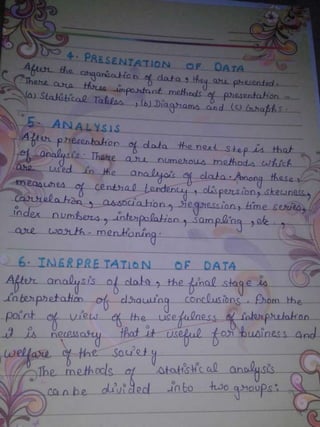 4. PRESENTATION OF DATA
After the organisation of data, they are presented.
There are three important methods of presentation -
(a) Statistical Tables, (b) Diagrams and (c) Graphs.
5- ANALYSIS
After presentation of data the next step is that
of analysis. There are numerous methods which
are used in the analysis of data. Among these,
measures of central tendency, dispersion, skewness,
correlation, association, regression, time series,
index numbers, interpolation, sampling, etc.,
are worth-mentioning.
6. INERPRETATION OF DATA
After analysis of data, the final stage is
interpretation of drawing conclusions. From the
point of view of the usefulness of interpretation
it is necessary that it useful for business and
welfare of the society
The methods of statistical analysis
can be divided into two groups: